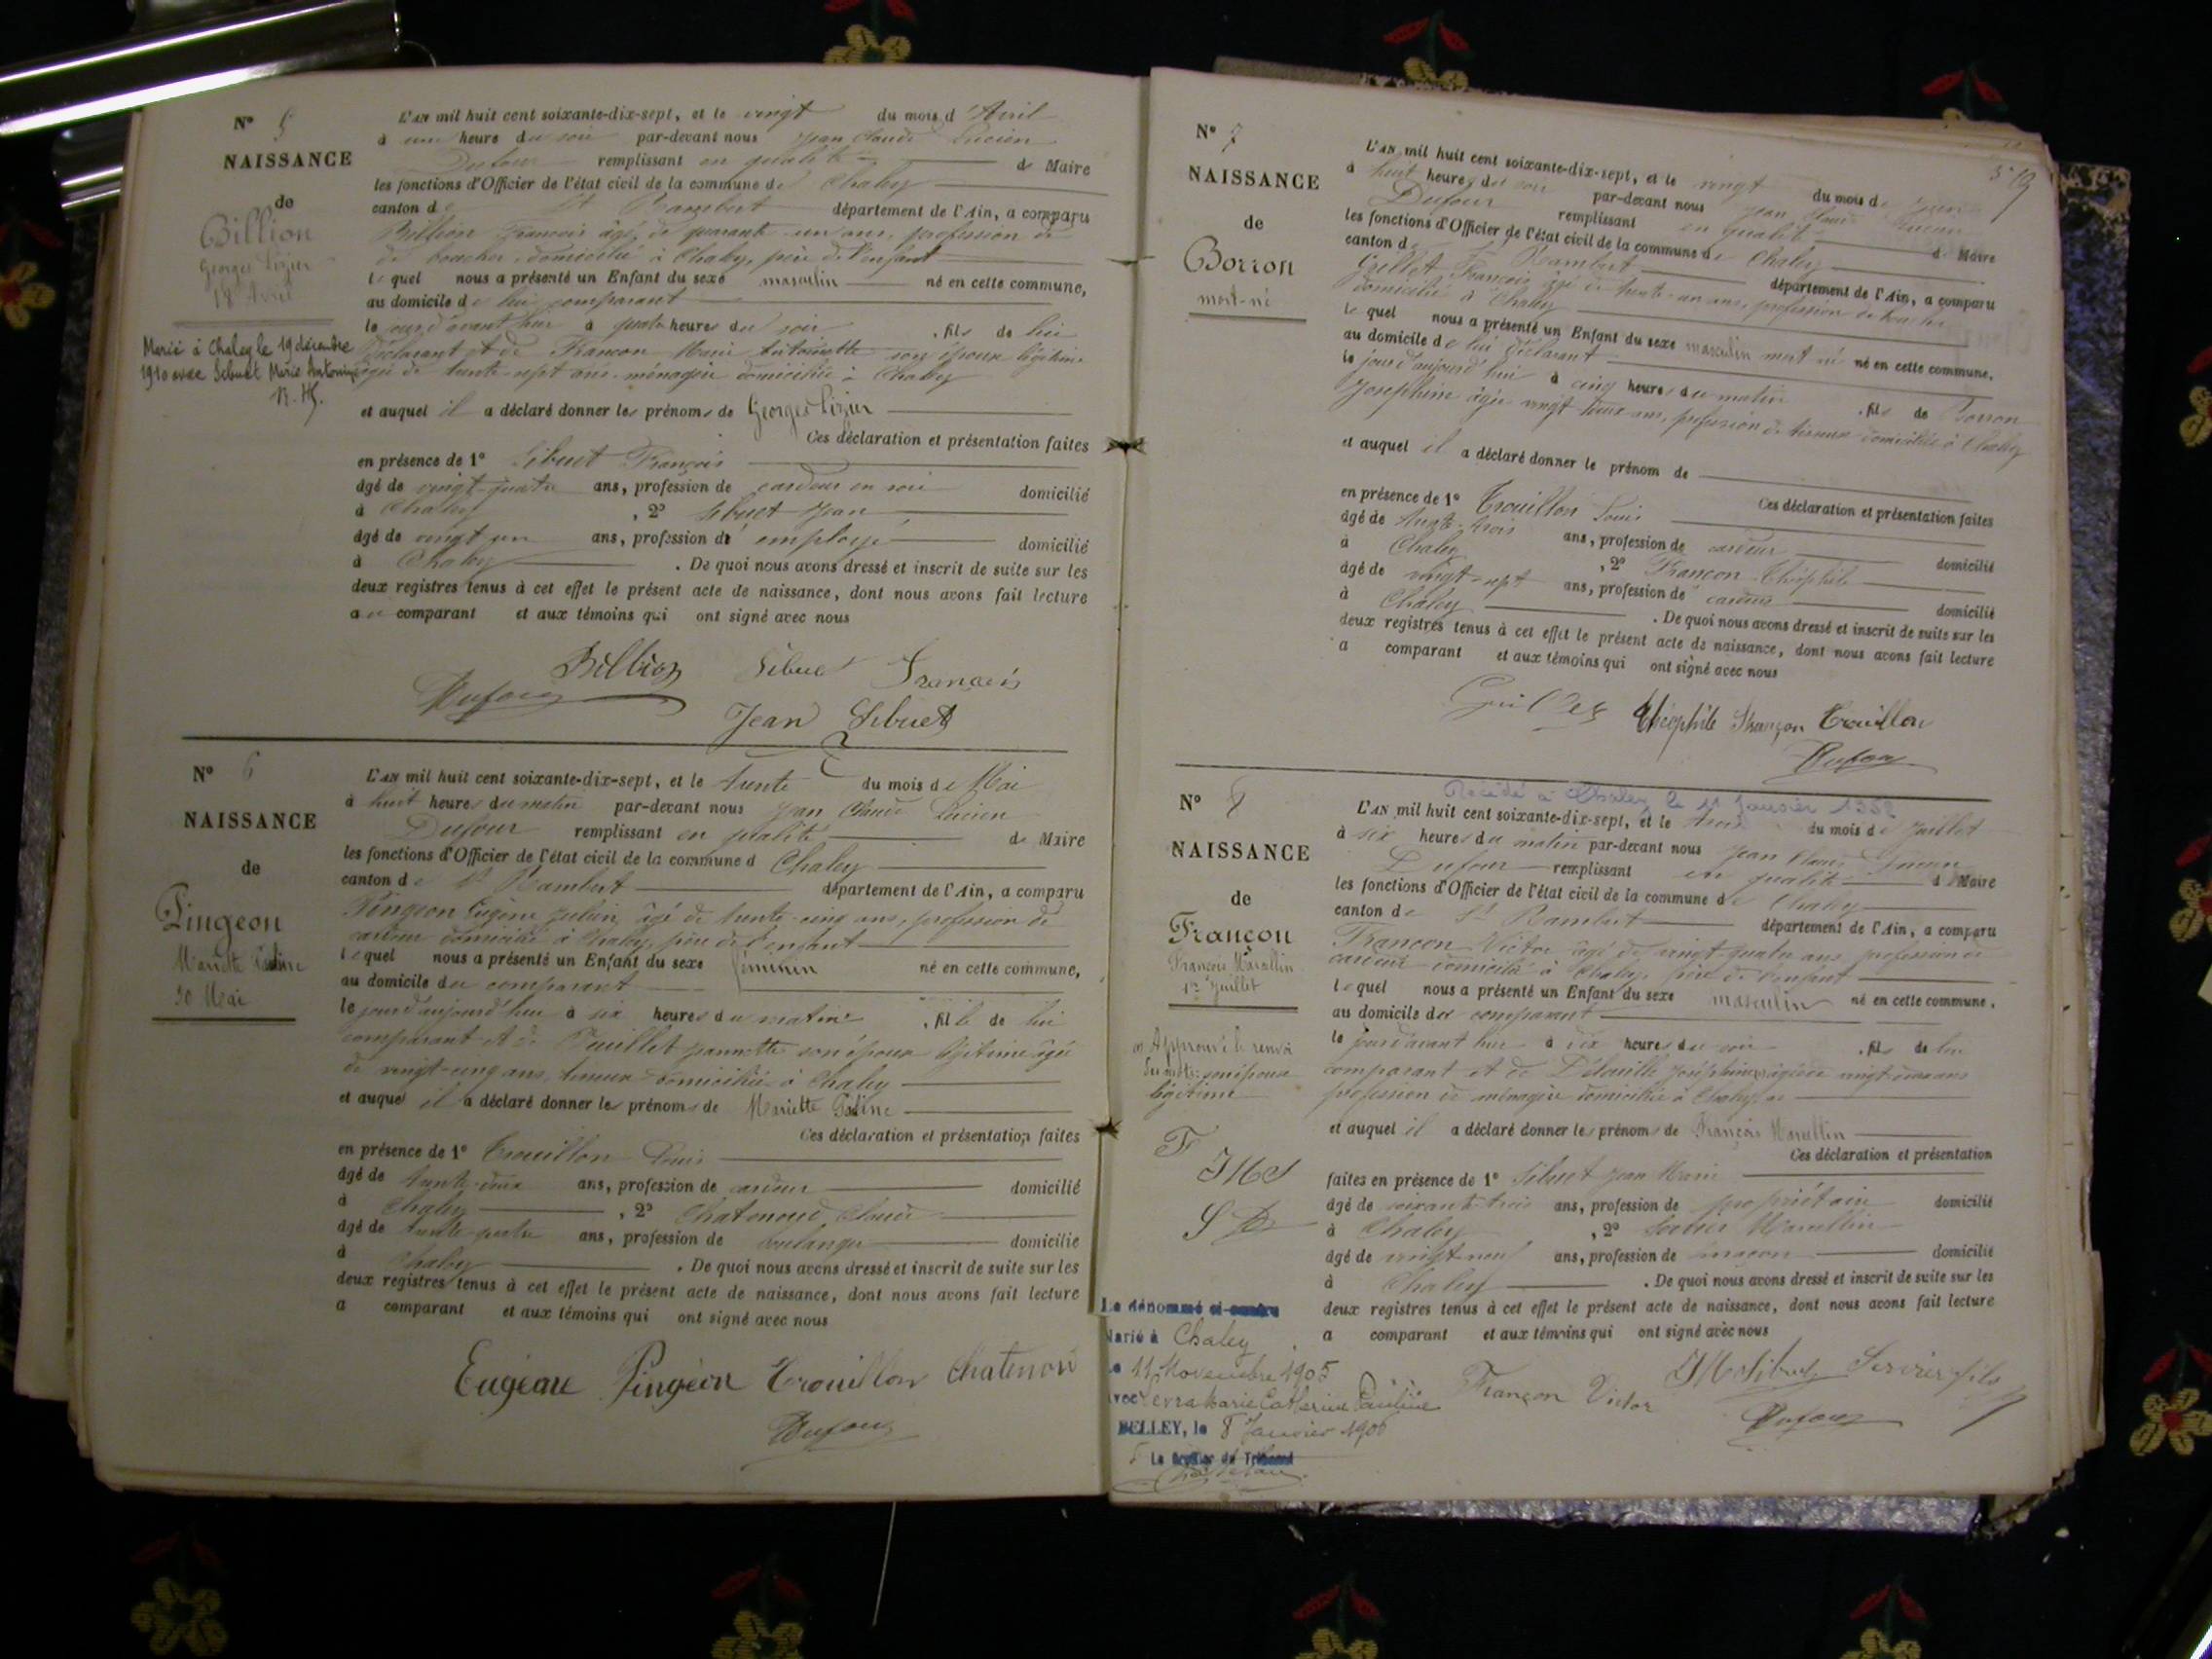 N° 5
NAISSANCE
de
Billion
Georges Lizier
18 Avril
Marié à Chaley le 19 décembre
1910 avec Sibuet Marie Antonine
L'AN mil huit cent soixante-dix-sept, et le vingt du mois d'Avril
à une heure du soir par-devant nous Jean Claude Lucien
Dufour remplissant en qualité de Maire
les fonctions d'Officier de l'état civil de la commune de Chaley
canton de St Rambert département de l'Ain, a comparu
Billion François âgé de quarante un ans, profession de
de boucher, domicilié à Chaley, père de l'enfant
lequel nous a présenté un Enfant du sexe masculin né en cette commune,
au domicile de lui comparant
le jour d'avant hier à quatre heures du soir, fils de lui
déclarant et de Françon Marie Antoinette son épouse légitime
âgée de trente-sept ans ménagère domiciliée à Chaley
et auquel il a déclaré donner les prénoms de Georges Lizier
Ces déclaration et présentation faites
en présence de 1° Sibuet François
âgé de vingt-quatre ans, profession de cardeur en soie domicilié
à Chaley, 2° Sibuet Jean
âgé de vingt un ans, profession de employé domicilié
à Chaley. De quoi nous avons dressé et inscrit de suite sur les
deux registres tenus à cet effet le présent acte de naissance, dont nous avons fait lecture
au comparant et aux témoins qui ont signé avec nous
Billion Sibuet François
Dufour
Jean Sibuet
N° 6
NAISSANCE
de
Pingeon
Mariette
30 Mai
L'AN mil huit cent soixante-dix-sept, et le trente du mois de Mai
à huit heures du matin par-devant nous Jean Claude Lucien
Dufour remplissant en qualité de Maire
les fonctions d'Officier de l'état civil de la commune d Chaley
canton de St Rambert département de l'Ain, a comparu
Pingeon Eugène Julien âgé de trente-cinq ans, profession de
cardeur domicilié à Chaley, père de l'enfant
lequel nous a présenté un Enfant du sexe féminin né en cette commune,
au domicile du comparant
le jour d'aujourd'hui à six heures du matin, fille de lui
comparant et de Juillet son épouse légitime âgée
de vingt-cinq ans, domiciliée à Chaley
et auquel il a déclaré donner les prénoms de Mariette
Ces déclaration et présentation faites
en présence de 1° Trouillon Louis
âgé de trente-deux ans, profession de cardeur domicilié
à Chaley, 2° Chatenoud Claude
âgé de trente-quatre ans, profession de boulanger domicilié
à Chaley. De quoi nous avons dressé et inscrit de suite sur les
deux registres tenus à cet effet le présent acte de naissance, dont nous avons fait lecture
a comparant et aux témoins qui ont signé avec nous
Eugène Pingeon Trouillon Chatenoud
Dufour
N° 7
NAISSANCE
de
Borron
mort-né
L'AN mil huit cent soixante-dix-sept, et le vingt du mois de Juin
à huit heures du soir par-devant nous Jean Claude Lucien
Dufour remplissant en qualité de Maire
les fonctions d'Officier de l'état civil de la commune de Chaley
canton de St Rambert département de l'Ain, a comparu
Grillet François âgé de trente-un ans, profession de
domicilié à Chaley
lequel nous a présenté un Enfant du sexe masculin mort né né en cette commune,
au domicile de lui déclarant
le jour d'aujourd'hui à cinq heures du matin, fils de Borron
Joséphine âgée vingt deux ans, profession de domiciliée à Chaley
et auquel il a déclaré donner le prénom de
Ces déclaration et présentation faites
en présence de 1° Trouillon Louis
âgé de trente-trois ans, profession de cardeur domicilié
à Chaley, 2° Françon Théophile
âgé de vingt-sept ans, profession de cardeur domicilié
à Chaley. De quoi nous avons dressé et inscrit de suite sur les
deux registres tenus à cet effet le présent acte de naissance, dont nous avons fait lecture
a comparant et aux témoins qui ont signé avec nous
Théophile Françon Trouillon
Dufour
N° 8
NAISSANCE
de
Françon
François Marcellin
1er Juillet
Approuvé le renvoi
des mots: son épouse
légitime
F
JMS
Le dénommé ci-contre
Marié à Chaley
le 11 Novembre 1905
avec Marie Catherine Pauline
BELLEY, le 8 Janvier 1906
Le Greffier du Tribunal
Décédé à Chaley le 11 Janvier
L'AN mil huit cent soixante-dix-sept, et le trois du mois de Juillet
à six heures du matin par-devant nous Jean Claude Lucien
Dufour remplissant en qualité d Maire
les fonctions d'Officier de l'état civil de la commune de Chaley
canton de St Rambert département de l'Ain, a comparu
Françon Victor âgé de vingt-quatre ans profession de
cardeur domicilié à Chaley, père de l'enfant
lequel nous a présenté un Enfant du sexe masculin né en cette commune,
au domicile du comparant
le jour d'avant hier à dix heures du soir, fils de lui
comparant et de Joséphine âgée de vingt-deux ans
profession de ménagère domiciliée à Chaley
et auquel il a déclaré donner les prénoms de François Marcellin
Ces déclaration et présentation
faites en présence de 1° Sibuet Jean Marie
âgé de soixante-trois ans, profession de propriétaire domicilié
à Chaley, 2° Marcellin
âgé de vingt-neuf ans, profession de maçon domicilié
à Chaley. De quoi nous avons dressé et inscrit de suite sur les
deux registres tenus à cet effet le présent acte de naissance, dont nous avons fait lecture
a comparant et aux témoins qui ont signé avec nous
Françon Victor JM Sibuet fils
Dufour